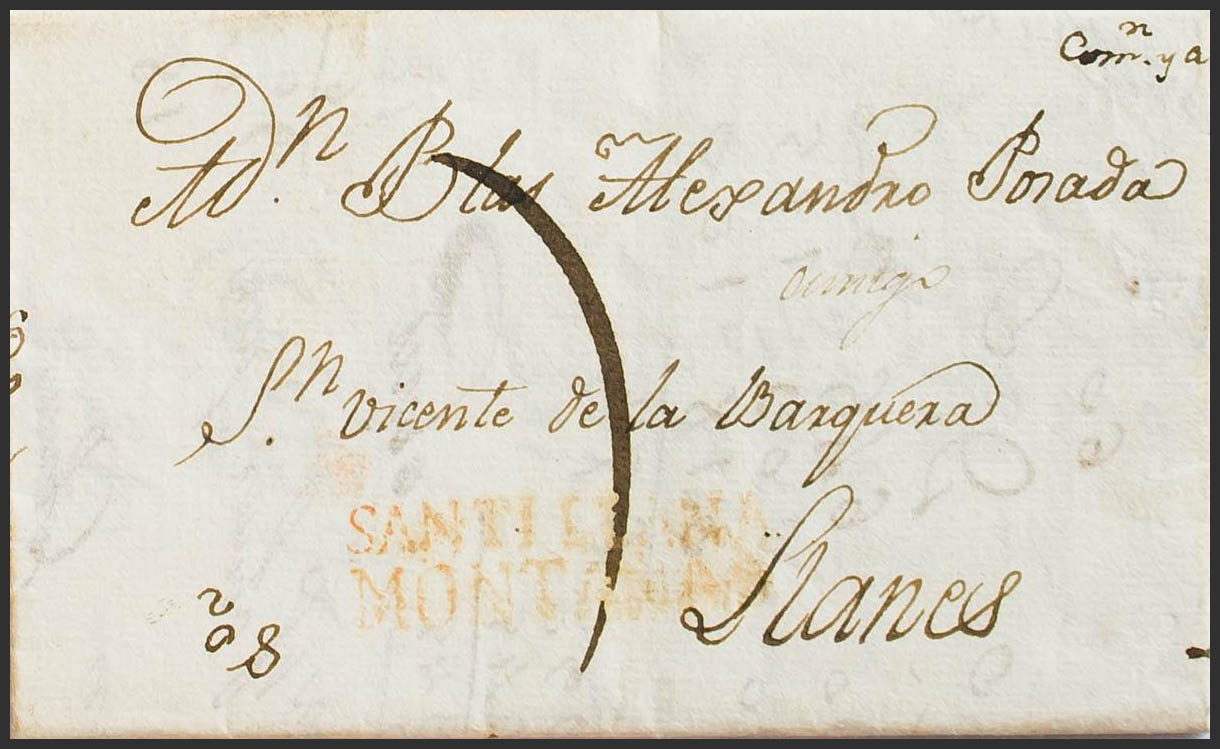 Com.n y a
A D.n Blas Alexandro Posada
amigo
S.n Vicente de la Barquera
SANTILLANA
MONTAÑAS
Llanes